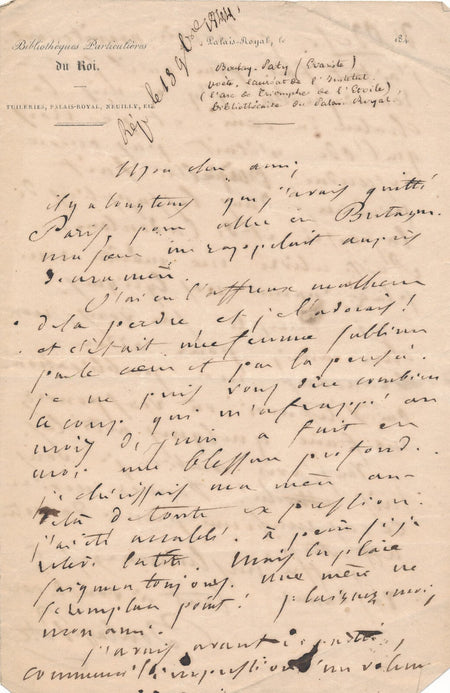 Bibliothèques Particulières
du Roi.
TUILERIES, PALAIS-ROYAL, NEUILLY, ETC.
Rép. le 13 9bre 1844.
Palais-Royal, le 184
Boulay-Paty (Evariste)
poète, lauréat de l'Institut
(l'arc de Triomphe de l'Etoile)
Bibliothécaire du Palais Royal.
Mon cher ami,
il y a longtems que j'avais quitté
Paris, pour aller en Bretagne.
ma sœur me rappelait auprès
de ma mère.
J'ai eu l'affreux malheur
de la perdre et je l'adorais!
et c'était une femme sublime
par le cœur et par la pensée.
je ne puis vous dire combien
ce coup qui m'a frappé au
mois de juin a fait en
moi une blessure profonde.
je chérissais ma mère au-
delà de toute expression.
j'ai été accablé. à peine si je
relève la tête. Mais la plaie
saignera toujours. une mère ne
se remplace point! plaignez-moi,
mon ami.
j'avais avant
commencé l'impression d'un volume